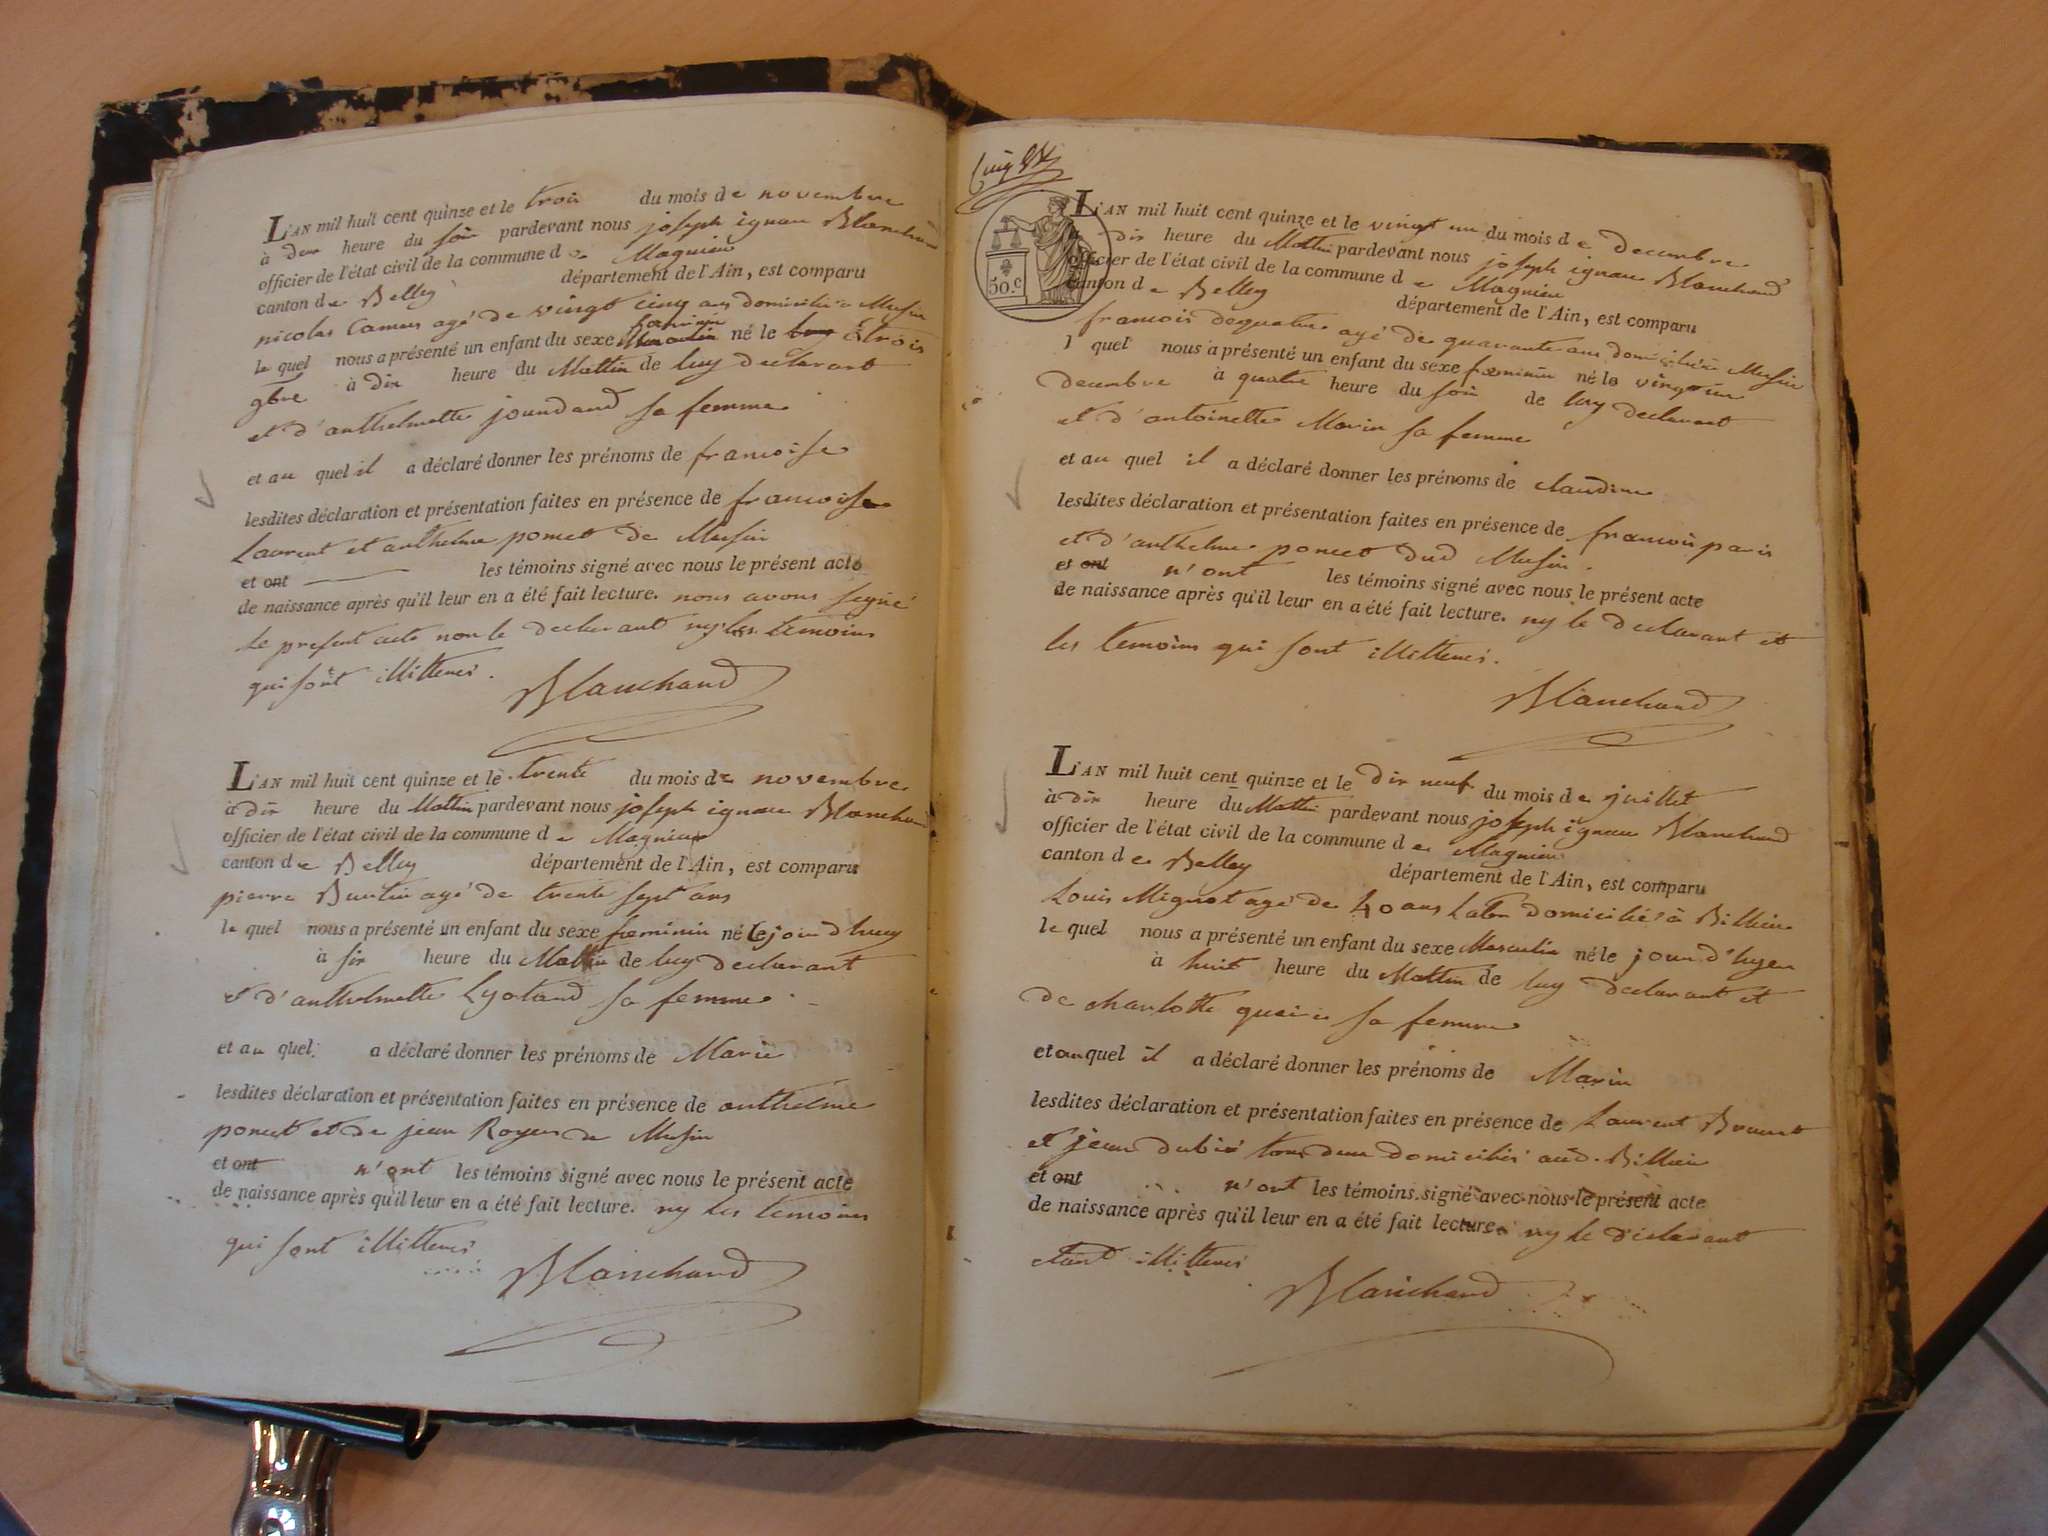 L'AN mil huit cent quinze et le trois du mois de novembre
à deux heure du soir pardevant nous joseph ignace Blanchard
officier de l'état civil de la commune de Magnieu
canton de Belley département de l'Ain, est comparu
nicolas Camus agé de vingt cinq ans domicilié a Musin
le quel nous a présenté un enfant du sexe feminin né le trois
9bre à dix heure du Mattin de luy declarant
et d'anthelmette jourdand sa femme
et au quel il a déclaré donner les prénoms de francoise
lesdites déclaration et présentation faites en présence de francoise
Laurent et anthelme poncet de Musin
et ont les témoins signé avec nous le présent acte
de naissance après qu'il leur en a été fait lecture. nous avons signé
le present acte non le declarant ny les temoins
qui sont illitterés.
Blanchard
L'AN mil huit cent quinze et le trente du mois de novembre
à dix heure du Mattin pardevant nous joseph ignace Blanchard
officier de l'état civil de la commune de Magnieu
canton de Belley département de l'Ain, est comparu
pierre Burtin agé de trente sept ans
le quel nous a présenté un enfant du sexe feminin né le jourd'huy
à six heure du Mattin de luy declarant
et d'anthelmette Lyotard sa femme
et au quel a déclaré donner les prénoms de Marie
lesdites déclaration et présentation faites en présence de anthelme
poncet et de jean Royer de Musin
et ont n'ont les témoins signé avec nous le présent acte
de naissance après qu'il leur en a été fait lecture. ny les temoins
qui sont illitterés
Blanchard
50.c
L'AN mil huit cent quinze et le vingt un du mois de decembre
à dix heure du Mattin pardevant nous joseph ignace Blanchard
officier de l'état civil de la commune de Magnieu
canton de Belley département de l'Ain, est comparu
francois agé de quarante ans domicilié a Musin
l quel nous a présenté un enfant du sexe feminin né le vingt un
decembre à quatre heure du soir de luy declarant
et d'antoinette Marin sa femme
et au quel il a déclaré donner les prénoms de claudine
lesdites déclaration et présentation faites en présence de francois paris
et d'anthelme poncet dud Musin.
et ont n'ont les témoins signé avec nous le présent acte
de naissance après qu'il leur en a été fait lecture. ny le declarant et
les temoins qui sont illitterés.
Blanchard
L'AN mil huit cent quinze et le dix neuf du mois de juillet
à dix heure du Mattin pardevant nous joseph ignace Blanchard
officier de l'état civil de la commune de Magnieu
canton de Belley département de l'Ain, est comparu
Louis Mignot agé de 40 ans domicilié à Billieu
le quel nous a présenté un enfant du sexe Masculin né le jourd'huy
à huit heure du Mattin de luy declarant et
de charlotte sa femme
et au quel il a déclaré donner les prénoms de Marin
lesdites déclaration et présentation faites en présence de Laurent Brunet
et jean dubié tous deux domiciliés aud. Billieu
et ont n'ont les témoins signé avec nous le présent acte
de naissance après qu'il leur en a été fait lecture. ny le declarant
etant illitterés
Blanchard